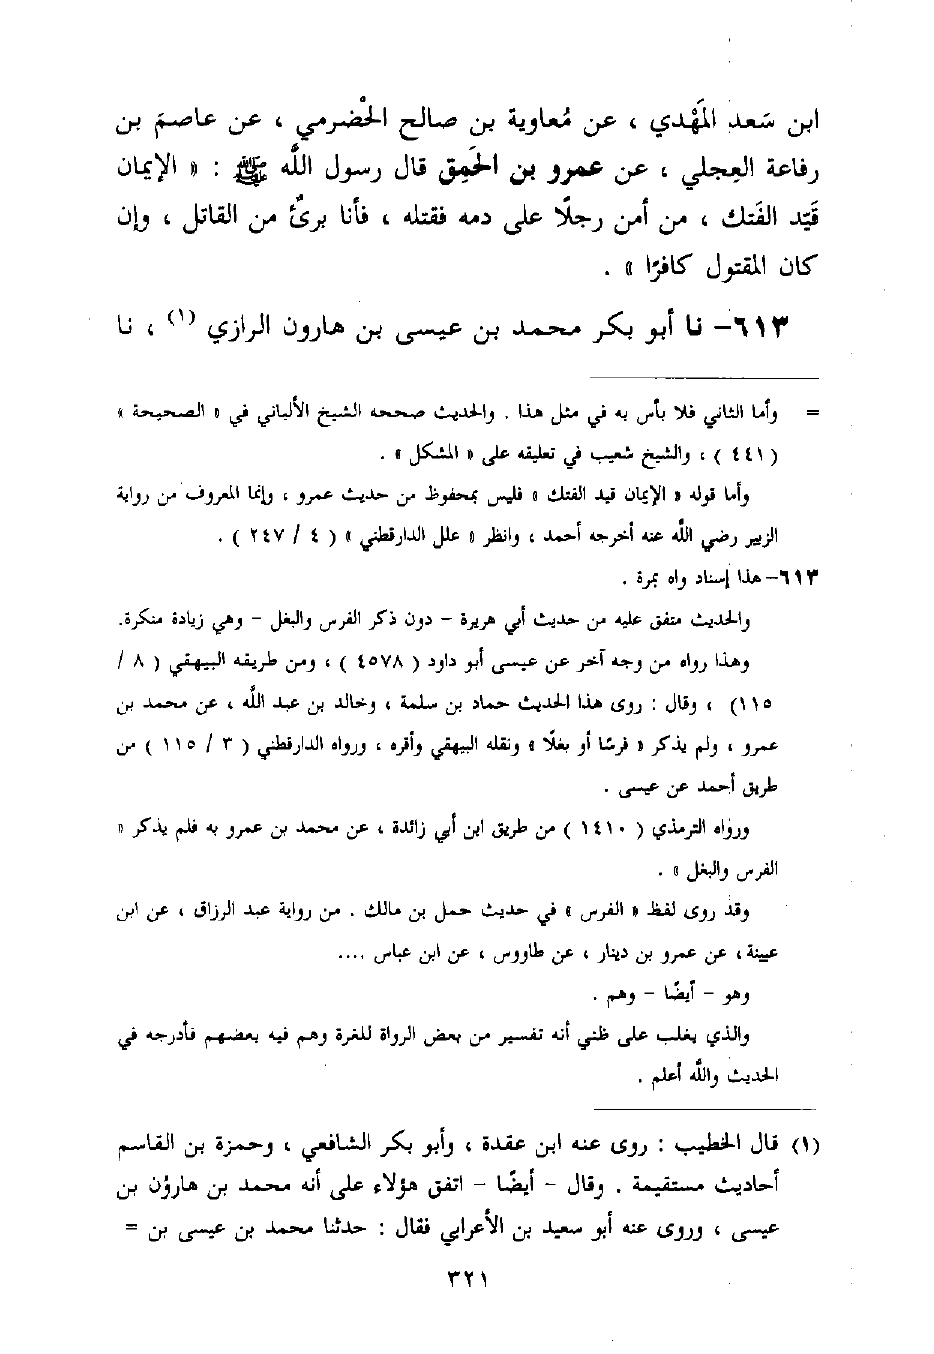 ابن سَعد المَهْدي ، عن مُعاوية بن صالح الحْضرمي ، عن عاصم بن
رفاعة العِجلي ، عن عمرو بن الحَمِق قال رسول اللَّه ﷺ : « الإيمان
قَيّد الفَتك ، من أمن رجلًا على دمه فقتله ، فأنا برئٌ من القاتل ، وإن
كان المقتول كافرًا » .
٦١٣- نا أبو بكر محمد بن عيسى بن هارون الرازي (١) ، نا
= وأما الثاني فلا بأس به في مثل هذا . والحديث صححه الشيخ الألباني في « الصحيحة »
( ٤٤١ ) ، والشيخ شعيب في تعليقه على « المشكل » .
وأما قوله « الإيمان قيد الفتك » فليس بمحفوظ من حديث عمرو ، وإنما المعروف من رواية
الزبير رضي اللَّه عنه أخرجه أحمد ، وانظر « علل الدارقطني » ( ٤ / ٢٤٧ ) .
٦١٣- هذا إسناد واه بمرة .
والحديث متفق عليه من حديث أبي هريرة - دون ذكر الفرس والبغل - وهي زيادة منكرة.
وهذا رواه من وجه آخر عن عيسى أبو داود ( ٤٥٧٨ ) ، ومن طريقه البيهقي ( ٨ /
١١٥) ، وقال : روى هذا الحديث حماد بن سلمة ، وخالد بن عبد اللَّه ، عن محمد بن
عمرو ، ولم يذكر « فرسًا أو بغلًا » ونقله البيهقي وأقره ، ورواه الدارقطني ( ٣ / ١١٥ ) من
طريق أحمد عن عيسى .
ورواه الترمذي ( ١٤١٠ ) من طريق ابن أبي زائدة ، عن محمد بن عمرو به فلم يذكر «
الفرس والبغل » .
وقد روى لفظ « الفرس » في حديث حمل بن مالك . من رواية عبد الرزاق ، عن ابن
عيينة ، عن عمرو بن دينار ، عن طاووس ، عن ابن عباس ....
وهو - أيضًا - وهم .
والذي يغلب على ظني أنه تفسير من بعض الرواة للغرة وهم فيه بعضهم فأدرجه في
الحديث واللَّه أعلم .
(١) قال الخطيب : روى عنه ابن عقدة ، وأبو بكر الشافعي ، وحمزة بن القاسم
أحاديث مستقيمة . وقال - أيضًا - اتفق هؤلاء على أنه محمد بن هارؤن بن
عيسى ، وروى عنه أبو سعيد بن الأعرابي فقال : حدثنا محمد بن عيسى بن =
٣٢١